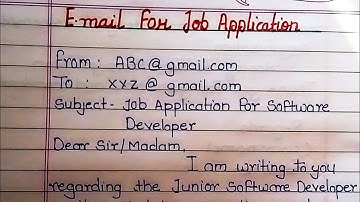 E-mail for Job Application
From : ABC@gmail.com
To : xxz@gmail.com
Subject- Job Application for Software
Developer
Dear Sir/Madam,
I am writing to you
regarding the Junior Software Developer